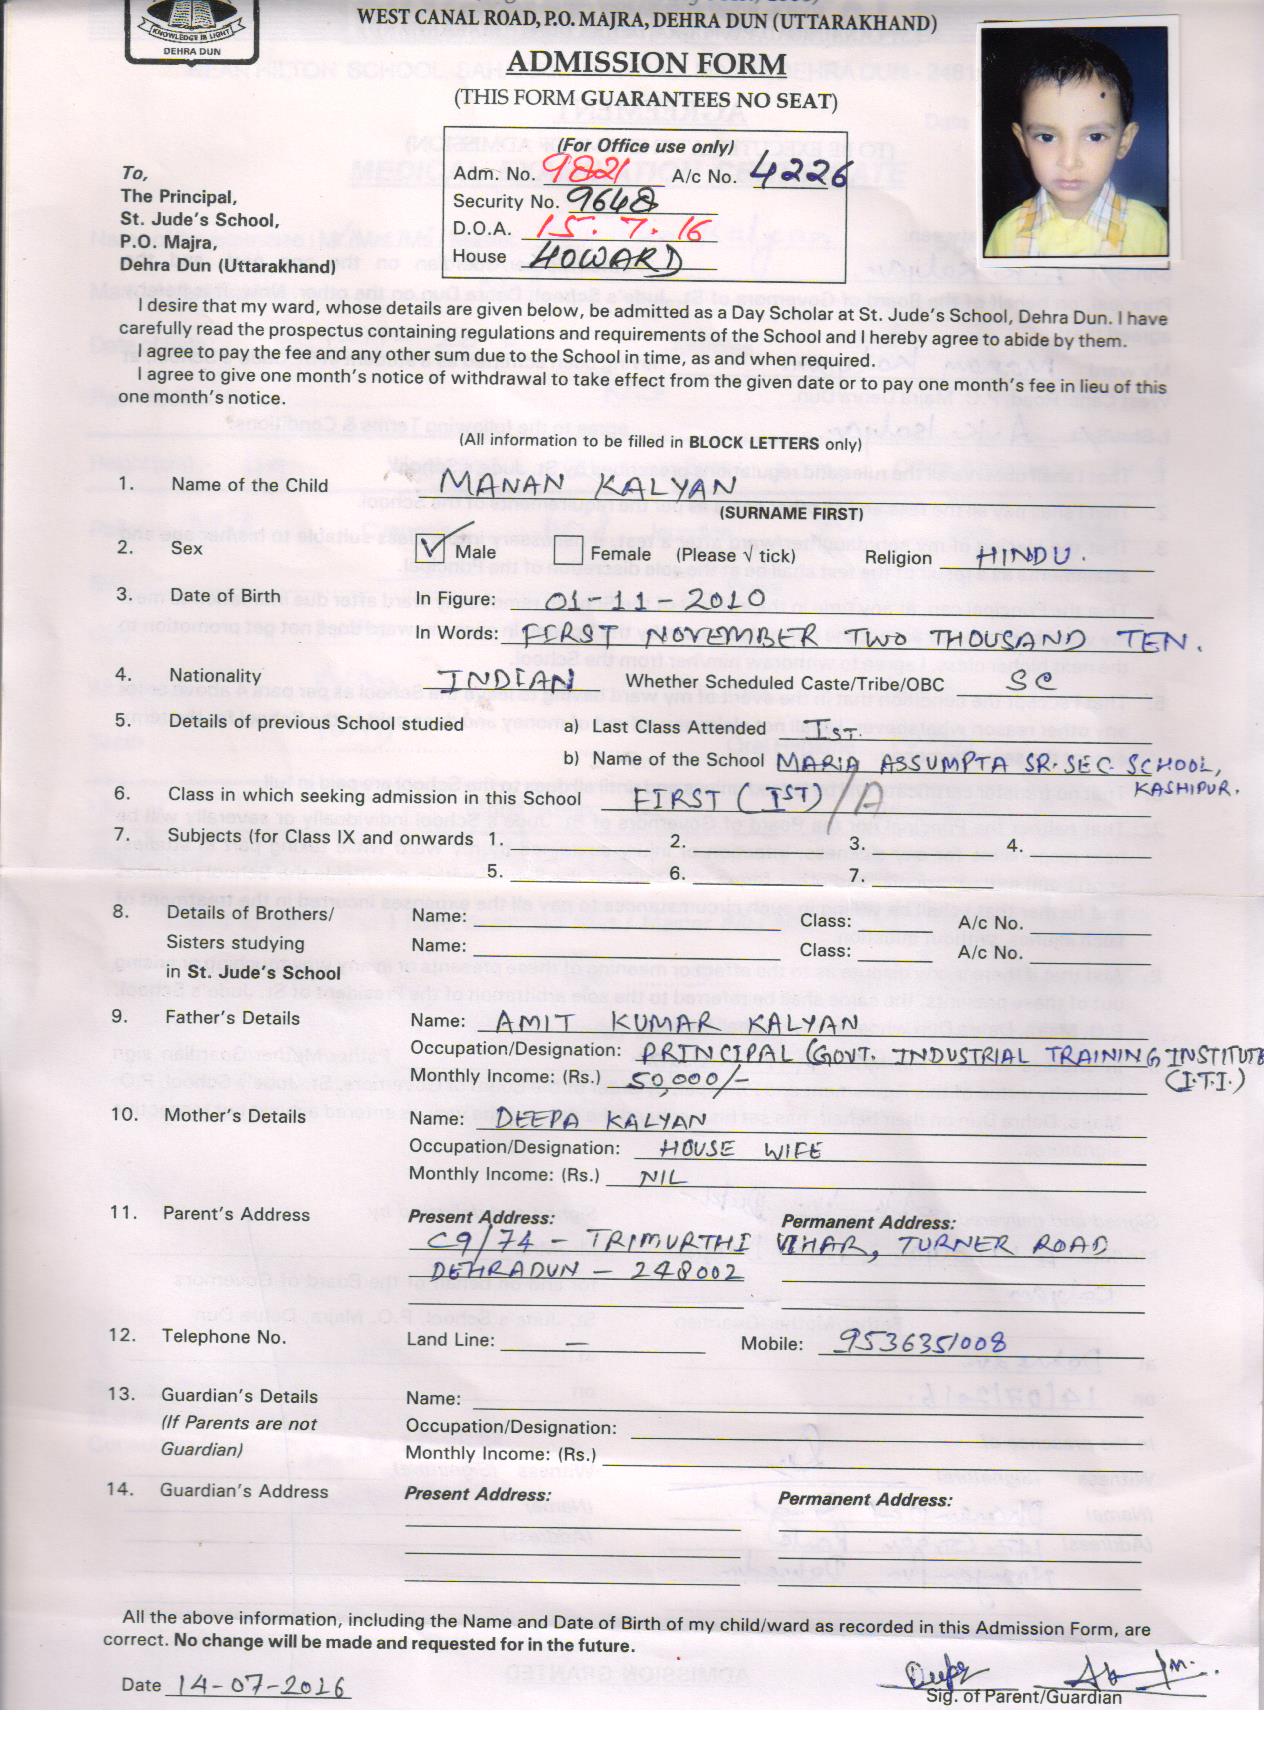 KNOWLEDGE IS LIGHT
DEHRA DUN
WEST CANAL ROAD, P.O. MAJRA, DEHRA DUN (UTTARAKHAND)
ADMISSION FORM
(THIS FORM GUARANTEES NO SEAT)
(For Office use only)
Adm. No. 9821 A/c No. 4226
Security No. 9648
D.O.A. 15.7.16
House HOWARD
To,
The Principal,
St. Jude's School,
P.O. Majra,
Dehra Dun (Uttarakhand)
I desire that my ward, whose details are given below, be admitted as a Day Scholar at St. Jude's School, Dehra Dun. I have
carefully read the prospectus containing regulations and requirements of the School and I hereby agree to abide by them.
I agree to pay the fee and any other sum due to the School in time, as and when required.
I agree to give one month's notice of withdrawal to take effect from the given date or to pay one month's fee in lieu of this
one month's notice.
(All information to be filled in BLOCK LETTERS only)
1. Name of the Child MANAN KALYAN
(SURNAME FIRST)
2. Sex Male Female (Please √ tick) Religion HINDU.
3. Date of Birth In Figure: 01-11-2010
In Words: FIRST NOVEMBER TWO THOUSAND TEN.
4. Nationality INDIAN Whether Scheduled Caste/Tribe/OBC SC
5. Details of previous School studied a) Last Class Attended IST.
b) Name of the School MARIA ASSUMPTA SR. SEC. SCHOOL,
KASHIPUR.
6. Class in which seeking admission in this School FIRST (IST) / A
7. Subjects (for Class IX and onwards 1. 2. 3. 4.
5. 6. 7.
8. Details of Brothers/ Name: Class: A/c No.
Sisters studying Name: Class: A/c No.
in St. Jude's School
9. Father's Details Name: AMIT KUMAR KALYAN
Occupation/Designation: PRINCIPAL (GOVT. INDUSTRIAL TRAINING INSTITUTE
Monthly Income: (Rs.) 50,000/- (I.T.I.)
10. Mother's Details Name: DEEPA KALYAN
Occupation/Designation: HOUSE WIFE
Monthly Income: (Rs.) NIL
11. Parent's Address Present Address: Permanent Address:
C9/74 - TRIMURTHI VIHAR, TURNER ROAD
DEHRADUN - 248002
12. Telephone No. Land Line: — Mobile: 9536351008
13. Guardian's Details Name:
(If Parents are not Occupation/Designation:
Guardian) Monthly Income: (Rs.)
14. Guardian's Address Present Address: Permanent Address:
All the above information, including the Name and Date of Birth of my child/ward as recorded in this Admission Form, are
correct. No change will be made and requested for in the future.
Date 14-07-2016
Sig. of Parent/Guardian